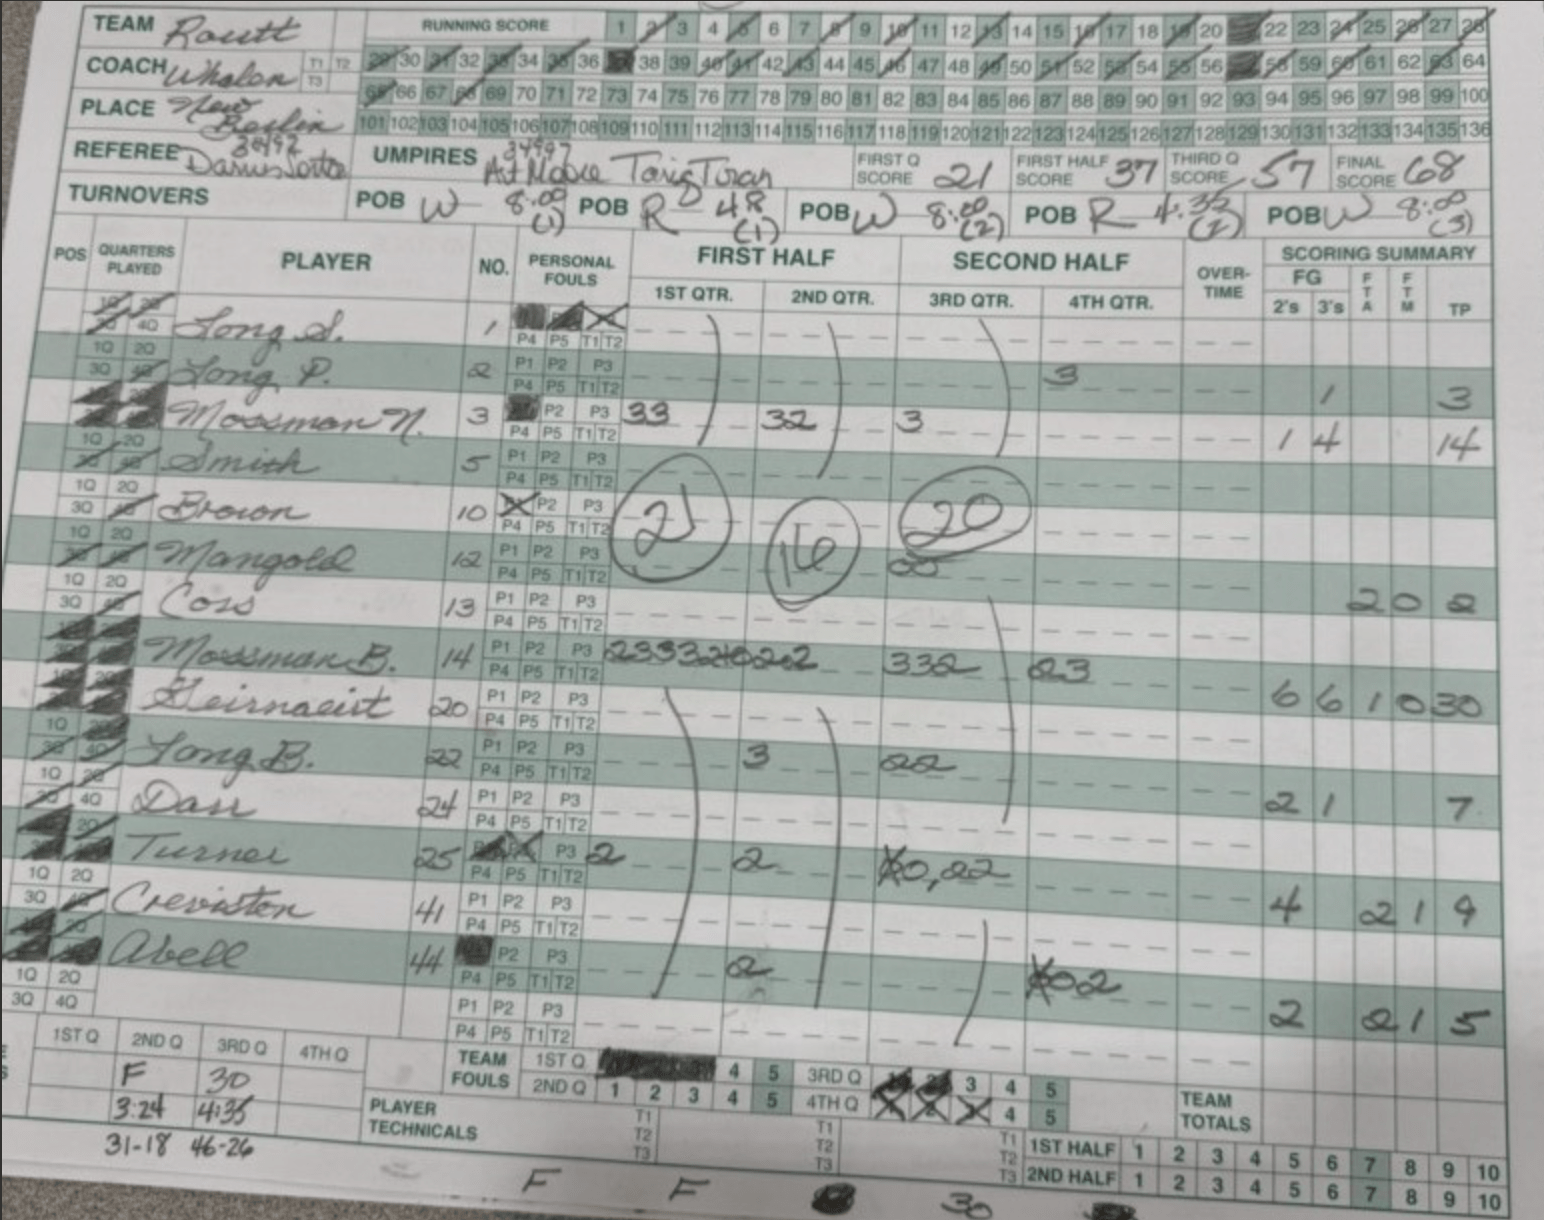 TEAM Routt RUNNING SCORE 1 2 3 4 5 6 7 8 9 10 11 12 13 14 15 16 17 18 19 20 22 23 24 25 26 27 28
COACH Whalen T1 T2 T3 29 30 31 32 33 34 35 36 37 38 39 40 41 42 43 44 45 46 47 48 49 50 51 52 53 54 55 56 57 58 59 60 61 62 63 64
65 66 67 68 69 70 71 72 73 74 75 76 77 78 79 80 81 82 83 84 85 86 87 88 89 90 91 92 93 94 95 96 97 98 99 100
PLACE New Berlin 101 102 103 104 105 106 107 108 109 110 111 112 113 114 115 116 117 118 119 120 121 122 123 124 125 126 127 128 129 130 131 132 133 134 135 136
REFEREE Darius UMPIRES 34997 FIRST Q SCORE 21 FIRST HALF SCORE 37 THIRD Q SCORE 57 FINAL SCORE 68
TURNOVERS POB W 8:00 (1) POB R 48 (1) POB W 8:00 (2) POB R 4:35 (2) POB W 8:00 (3)
POS QUARTERS PLAYED PLAYER NO. PERSONAL FOULS FIRST HALF SECOND HALF OVER-TIME SCORING SUMMARY
1ST QTR. 2ND QTR. 3RD QTR. 4TH QTR. FG 2's 3's FTA FTM TP
4Q Long S. 1 P4 P5 T1 T2
1Q 2Q 3Q 4Q Long P. 2 P1 P2 P3 P4 P5 T1 T2 3 1 3
Mossman N. 3 P2 P3 P4 P5 T1 T2 33 32 3 1 4 14
1Q 2Q Smith 5 P1 P2 P3 P4 P5 T1 T2
1Q 2Q 3Q Brown 10 P2 P3 P4 P5 T1 T2 21 16 20
1Q 2Q Mangold 12 P1 P2 P3 P4 P5 T1 T2 00 2 0 2
1Q 2Q 3Q Coss 13 P1 P2 P3 P4 P5 T1 T2
Mossman B. 14 P1 P2 P3 P4 P5 T1 T2 332 23 6 6 1 0 30
Geirnaeirt 20 P1 P2 P3 P4 P5 T1 T2
1Q Long B. 22 P1 P2 P3 P4 P5 T1 T2 3 22 2 1 7
1Q 2Q 4Q Darr 24 P1 P2 P3 P4 P5 T1 T2
2Q Turner 25 P3 P4 P5 T1 T2 2 2 0,22 4 2 1 9
1Q 2Q 3Q Creviston 41 P1 P2 P3 P4 P5 T1 T2
Abell 44 P2 P3 P4 P5 T1 T2 2 02 2 2 1 5
1Q 2Q 3Q 4Q P1 P2 P3 P4 P5 T1 T2
1ST Q 2ND Q 3RD Q 4TH Q TEAM FOULS 1ST Q 4 5 3RD Q 3 4 5
F 30 2ND Q 1 2 3 4 5 4TH Q 4 5 TEAM TOTALS
3:24 4:35 PLAYER TECHNICALS T1 T2 T3 T1 T2 T3 T1 T2 T3 1ST HALF 1 2 3 4 5 6 7 8 9 10
31-18 46-26 2ND HALF 1 2 3 4 5 6 7 8 9 10
F F 30